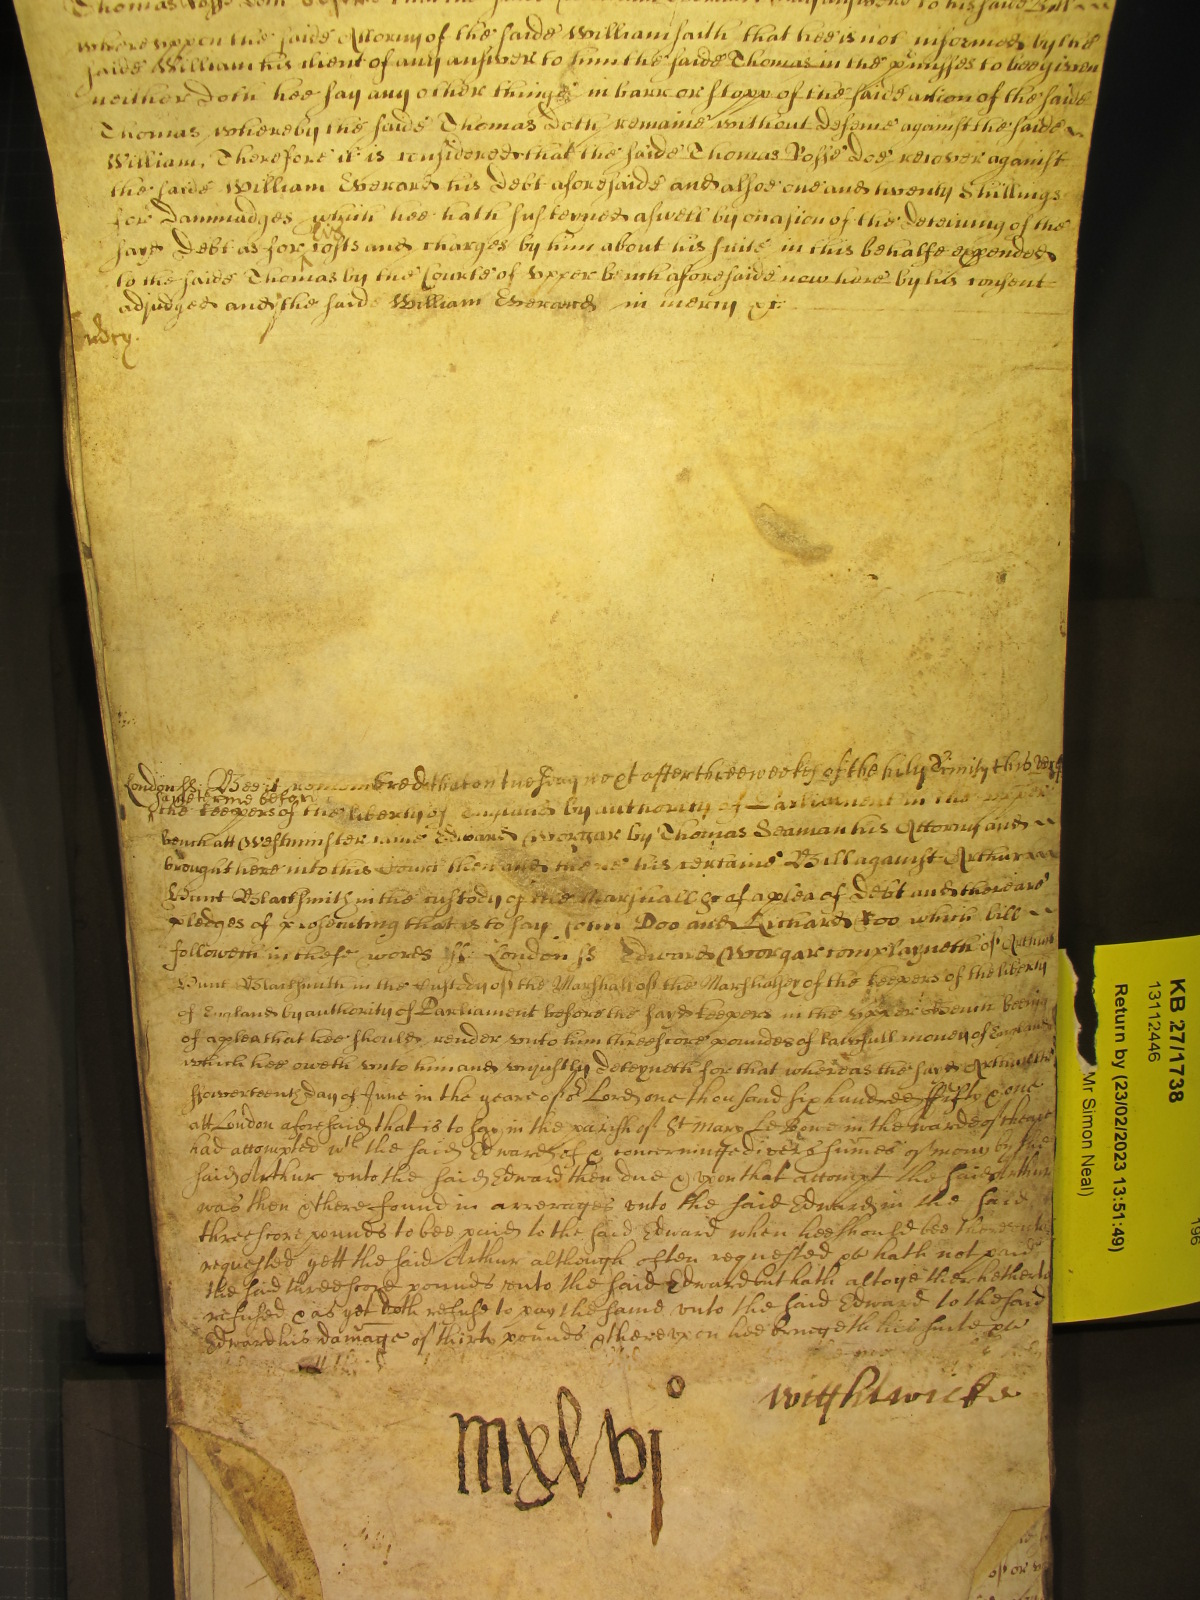 whereuppon the saide Attorny of the saide William saith that hee is not informed by the
saide William his client of any answer to him the saide Thomas in the to bee given
neither doth hee say any other thinge in barr or stopp of the saide action of the saide
Thomas whereby the saide Thomas doth remaine without defence against the saide
William, Therefore it is considered that the saide Thomas Posse doe recover against
the saide William Everard his debt aforesaide and alsoe one and twenty Shillings
for dammadges which hee hath susteyned aswell by occasion of the deteining of the
sayd debt as for costs and charges by him about his suite in this behalfe expended
to the saide Thomas by the Courte of upper bench aforesaide now here by his consent
adjudged and the saide William Everard in mercy &c
London ss Bee it remembred that on tuesday next after three weekes of the holy Trinity this
same terme before
the keepers of the liberty of England by authority of Parliament in the upper
bench att Westminster came Edward Worgar by Thomas Seaman his Attorny and
brought here into this Court then and there his certaine Bill against Arthur
Hunt Blacksmith in the custody of the Marshall &c of a plea of debt and there are
pledges of prosecuting that is to say John Doo and Richard Roo which bill
followeth in these words ss London ss Edward Worgar complayneth of Arthur
Hunt Blacksmith in the custody of the Marshall of the Marshalsey of the keepers of the liberty
of England by authority of Parliament before the sayd keepers in the upper bench beeing
of a plea that hee should render unto him threescore poundes of lawfull money of England
which hee oweth unto him and unjustly deteyneth for that whereas the sayd Arthur the
fowerteenth day of June in the yeare of or Lord one thousand six hundred fifty & one
att London aforesaid that is to say in the parish of St Mary Le Bowe in the warde of Cheape
had attompted wth the said Edward of & concerninge divers summes of mony by the
said Arthur unto the said Edward then due & upon that attompt the said Arthur
was then & there found in arrerages unto the said Edward in the said
threescore pounds to bee paid to the said Edward when hee should bee thereunto
requested yett the said Arthur although often requested &c hath not paid
the said threescore pounds unto the said Edward but hath altogether hetherto
refused & as yet doth refuse to pay the same unto the said Edward to the said
Edward his damage of thirty pounds & thereupon hee bringeth his suite &c
Witthiwicke
mxlvj o
KB 27/1738
13112446
Return by (23/02/2023 13:51:49)
Mr Simon Neal)
196